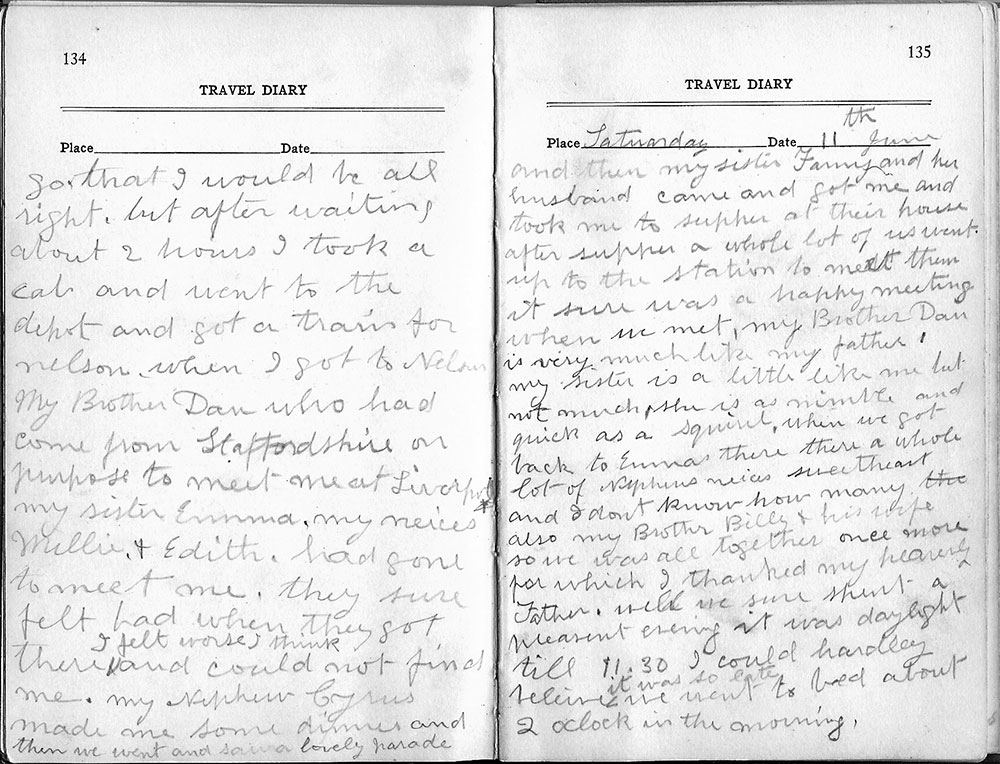 134
TRAVEL DIARY
Place Date
go. that I would be all
right. but after waiting
about 2 hours I took a
cab and went to the
depot and got a train for
nelson. when I got to Nelson
My Brother Dan who had
come from Staffordshire on
purpose to meet me at Liverpool
my sister Emma. my neices
Millie. & Edith. had gone
to meet me. they sure
felt bad when they got
I felt worse I think
there and could not find
me. my Nephew Cyrus
made me some dinner and
then we went and saw a lovely parade
135
TRAVEL DIARY
Place Saturday Date 11th June
and then my sister Fanny and her
husband came and got me and
took me to supper at their house
after supper a whole lot of us went
up to the station to meet them
it sure was a happy meeting
when we met, my Brother Dan
is very much like my father!
my sister is a little like me but
not much, she is as nimble and
quick as a squirel, when we got
back to Emmas there there a whole
lot of Nephews neices sweetheart
and I dont know how many the
also my Brother Billy & his wife
so we was all together once more
for which I thanked my heavenly
Father. well we sure spent a
pleasent evening it was daylight
till 11.30 I could hardley
it was so late
believe we went to bed about
2 oclock in the morning.